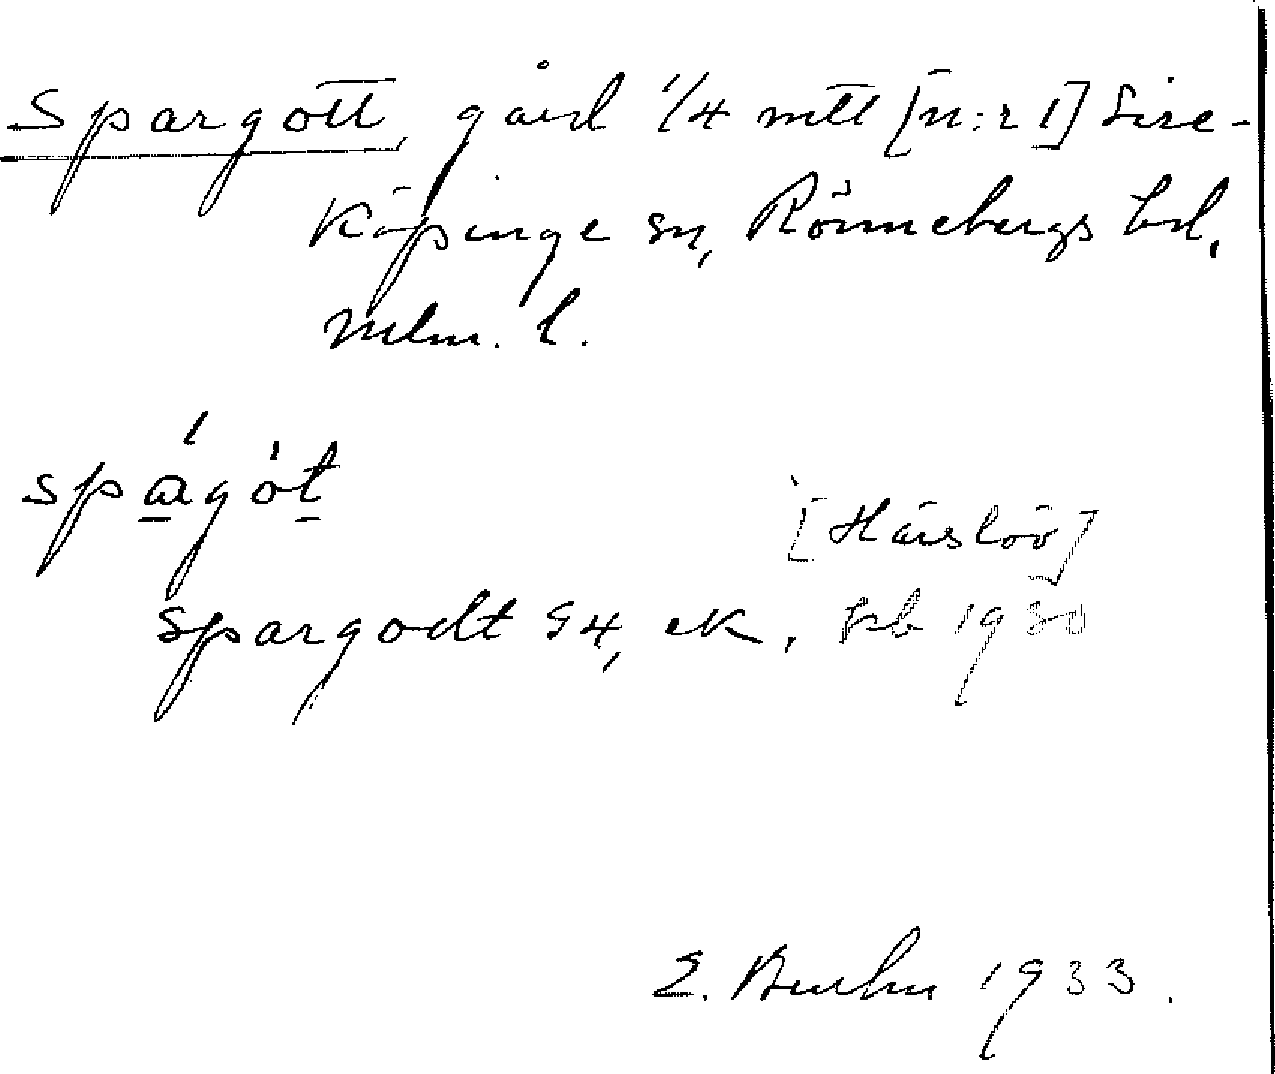 Spargott, gård 1/4 mtl [n:r 1] Sire-
köpinge sn, Rönnebergs hd,
Mlm. l.
spágót
[Härslöv]
Spargodt G4, ek, Jsb 1930
1933.